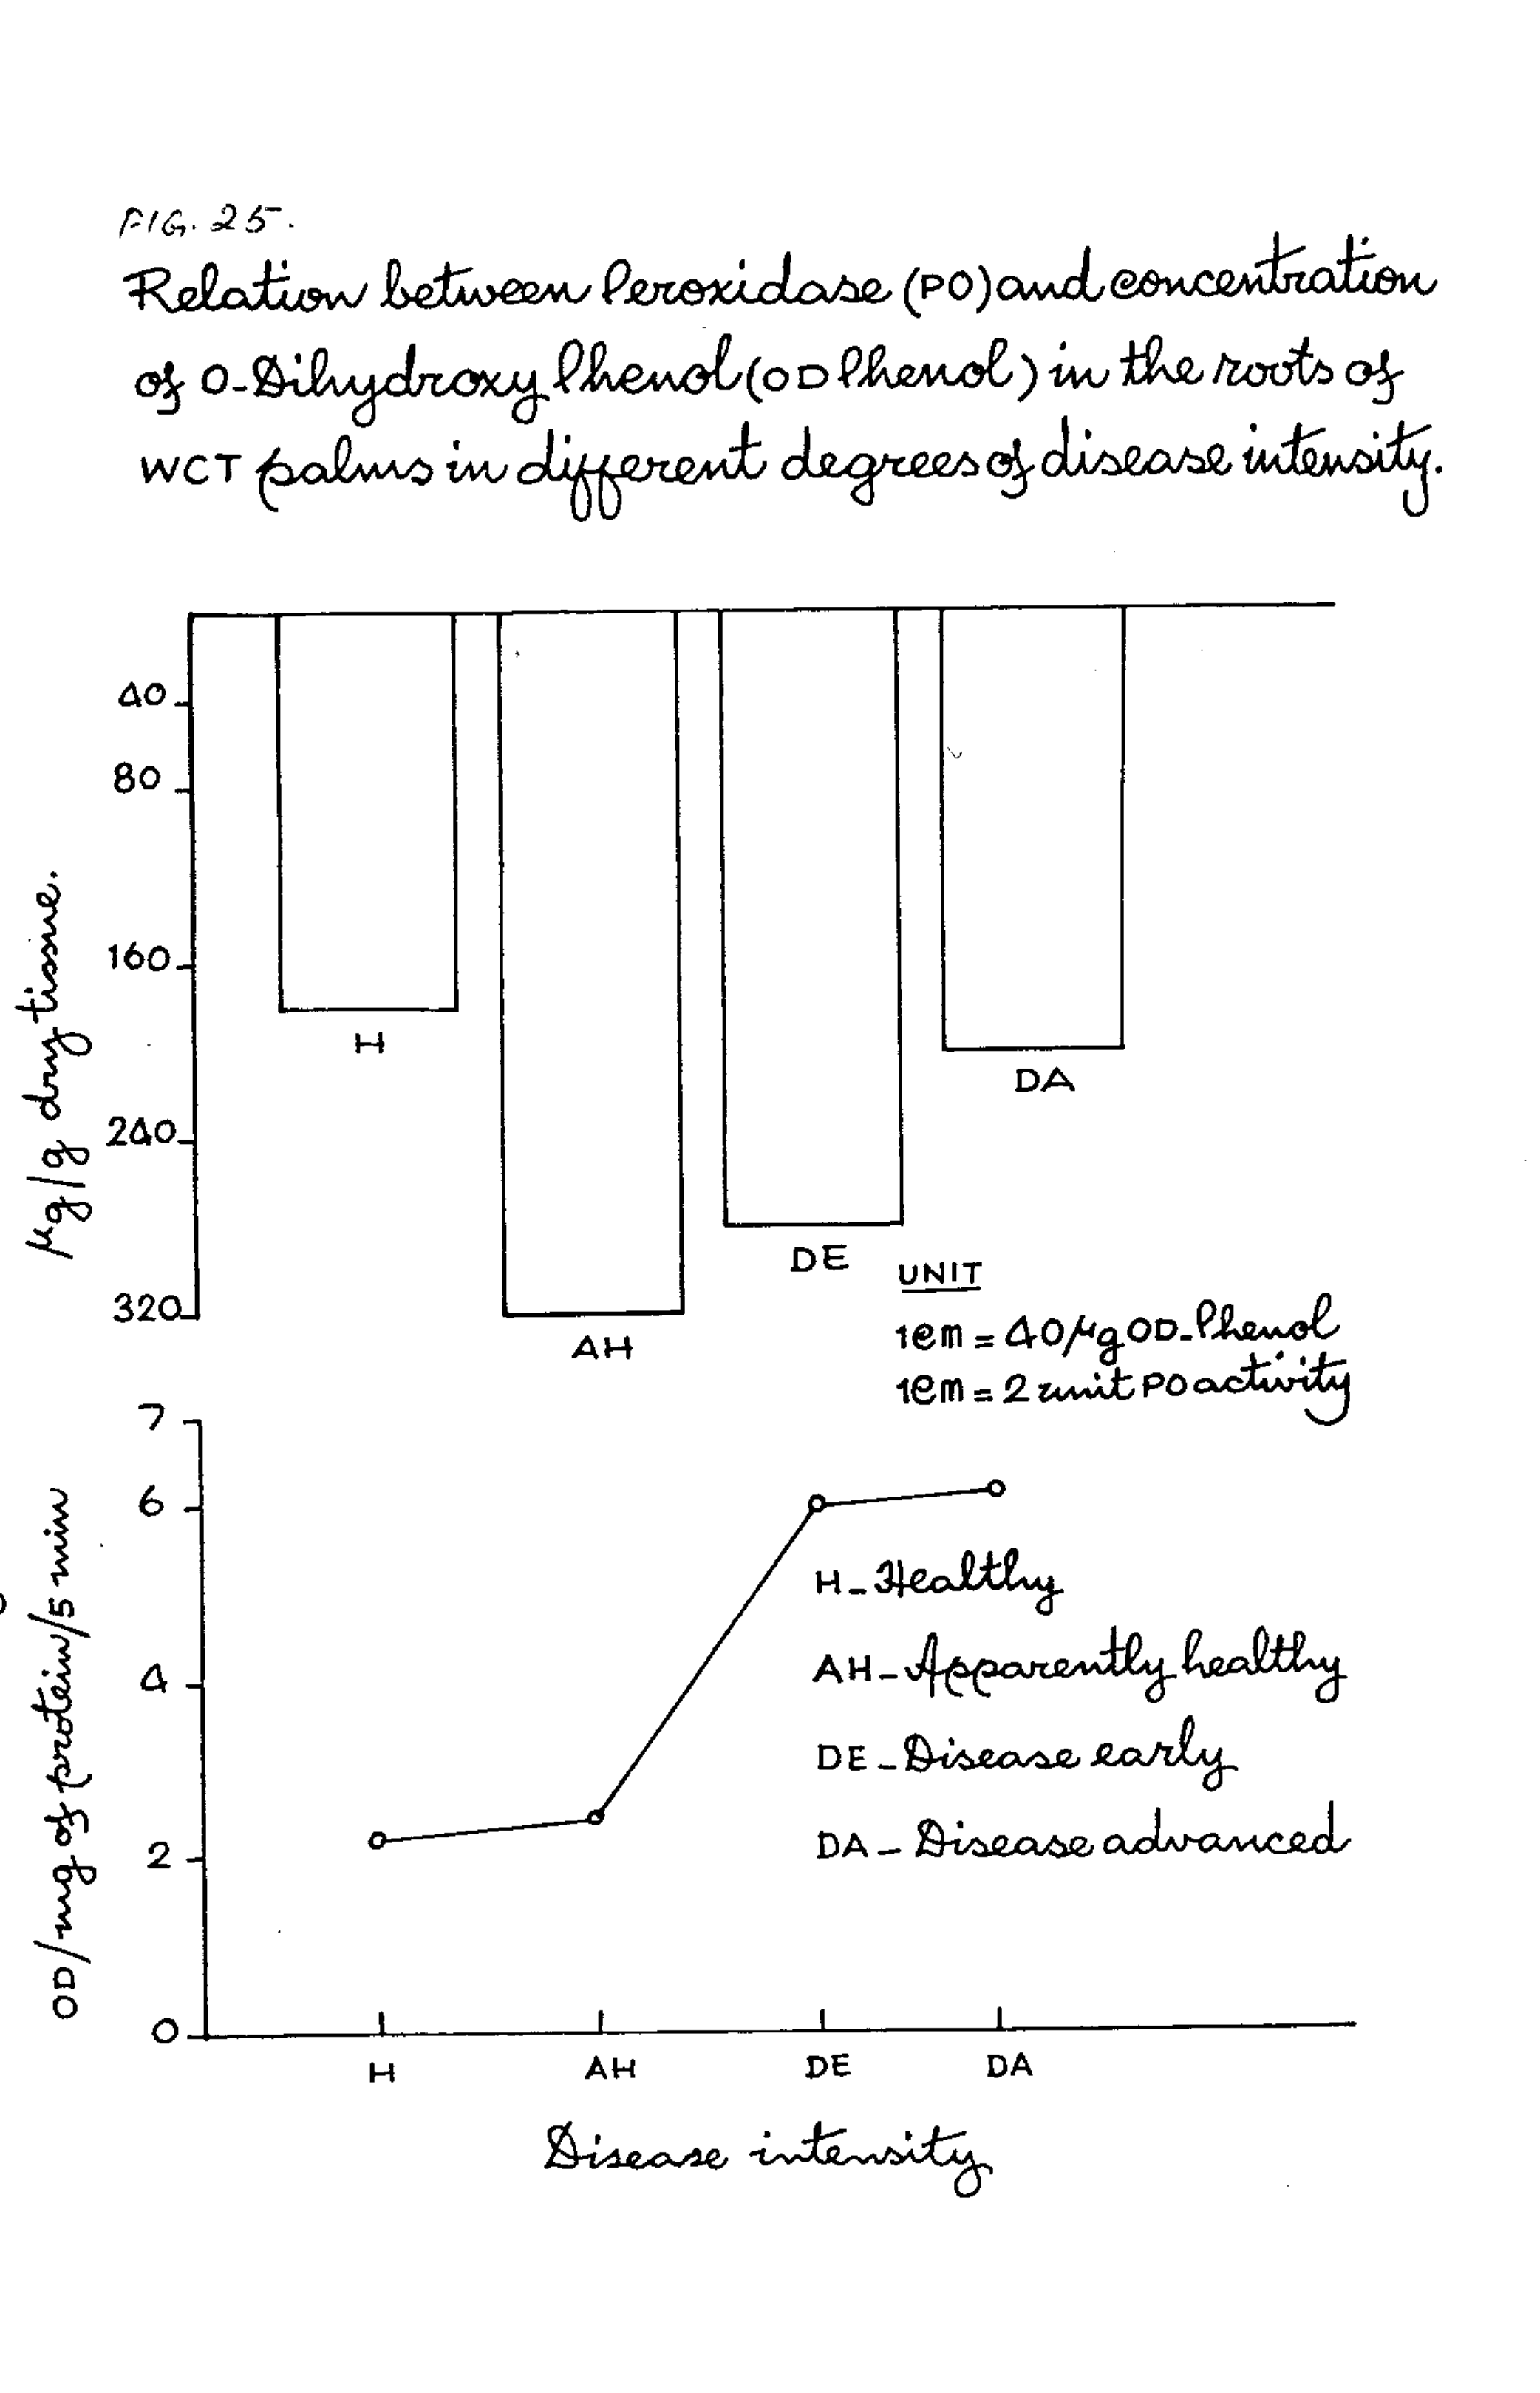 FIG. 25.
Relation between Peroxidase (PO) and concentration
of O-Dihydroxy Phenol (OD Phenol) in the roots of
WCT palms in different degrees of disease intensity.
40
80
160
240
320
μg/g dry tissue.
H
AH
DE
DA
UNIT
1cm = 40 μg OD-Phenol
1cm = 2 unit PO activity
7
6
4
2
0
OD/mg of protein/5 min
H - Healthy
AH - Apparently healthy
DE - Disease early
DA - Disease advanced
H AH DE DA
Disease intensity